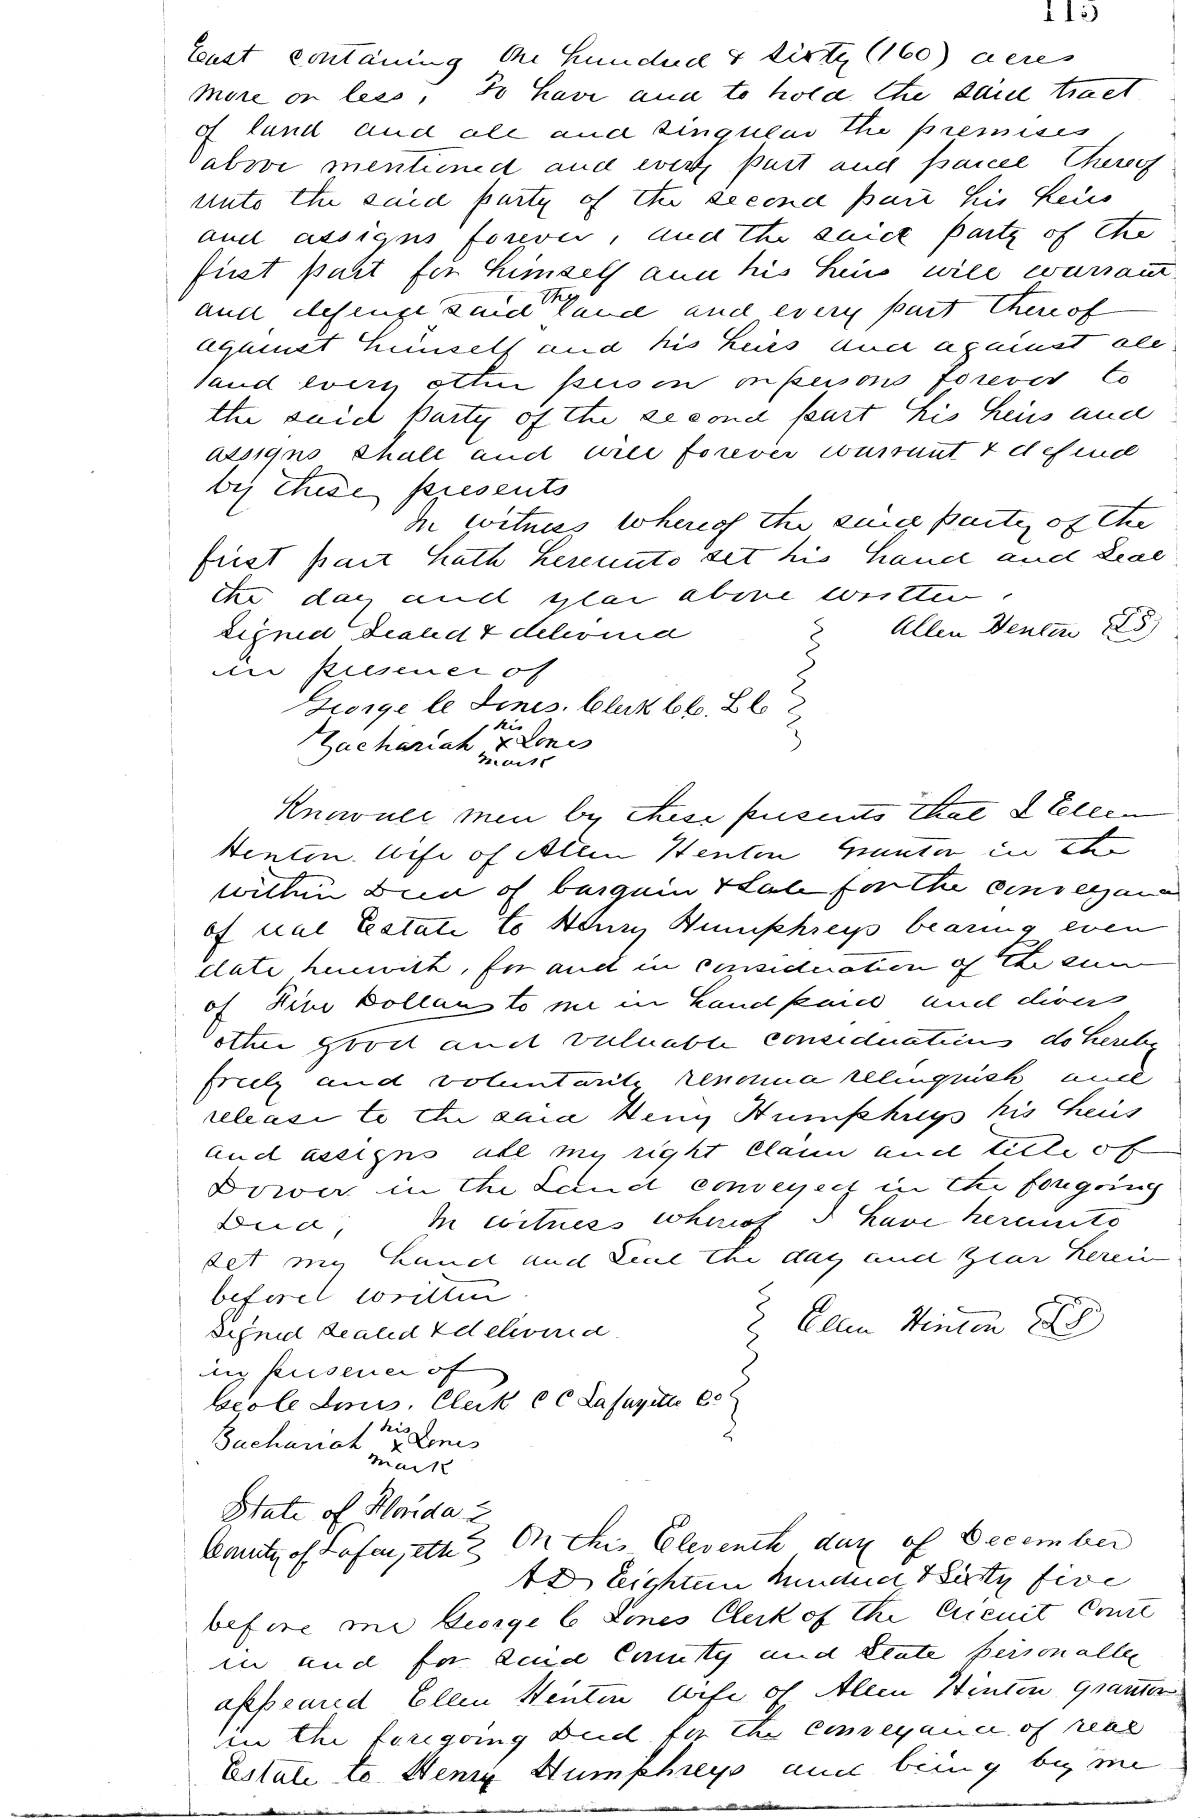 115
East containing One hundred & Sixty (160) acres
more or less, To have and to hold the said tract
of land and all and singular the premises,
above mentioned and every part and parcel thereof
unto the said party of the second part his heirs
and assigns forever, and the said party of the
first part for himself and his heirs will warrant
and defend said the land and every part thereof
against himself and his heirs and against all
and every other person or persons forever to
the said party of the second part his heirs and
assigns shall and will forever warrant & defend
by these presents
In witness whereof the said party of the
first part hath hereunto set his hand and Seal
the day and year above written.
Signed Sealed & delivered
Allen Henton LS
in presence of
George C Jones. Clerk CC. LC
Zachariah his x mark Jones
Know all men by these presents that I Ellen
Henton. Wife of Allen Henton Grantor in the
within Deed of bargain & Sale for the conveyance
of real Estate to Henry Humphreys bearing even
date herewith, for and in consideration of the sum
of Five Dollars to me in hand paid and divers
other good and valuable considerations do hereby
freely and voluntarily relinquish and
release to the said Henry Humphreys his heirs
and assigns all my right Claim and title of
Dower in the Land conveyed in the foregoing
Deed, In witness whereof I have hereunto
set my hand and Seal the day and year herein
before written
Signed Sealed & delivered.
Ellen Hinton LS
in presence of
Geo C Jones. Clerk C C Lafayette Co
Zachariah his x mark Jones
State of Florida
County of Lafayette On this Eleventh day of December
AD Eighteen hundred & Sixty five
before me George C Jones Clerk of the Circuit Court
in and for said County and State personally
appeared Ellen Henton wife of Allen Hinton grantor
in the foregoing Deed for the conveyance of real
Estate to Henry Humphreys and being by me